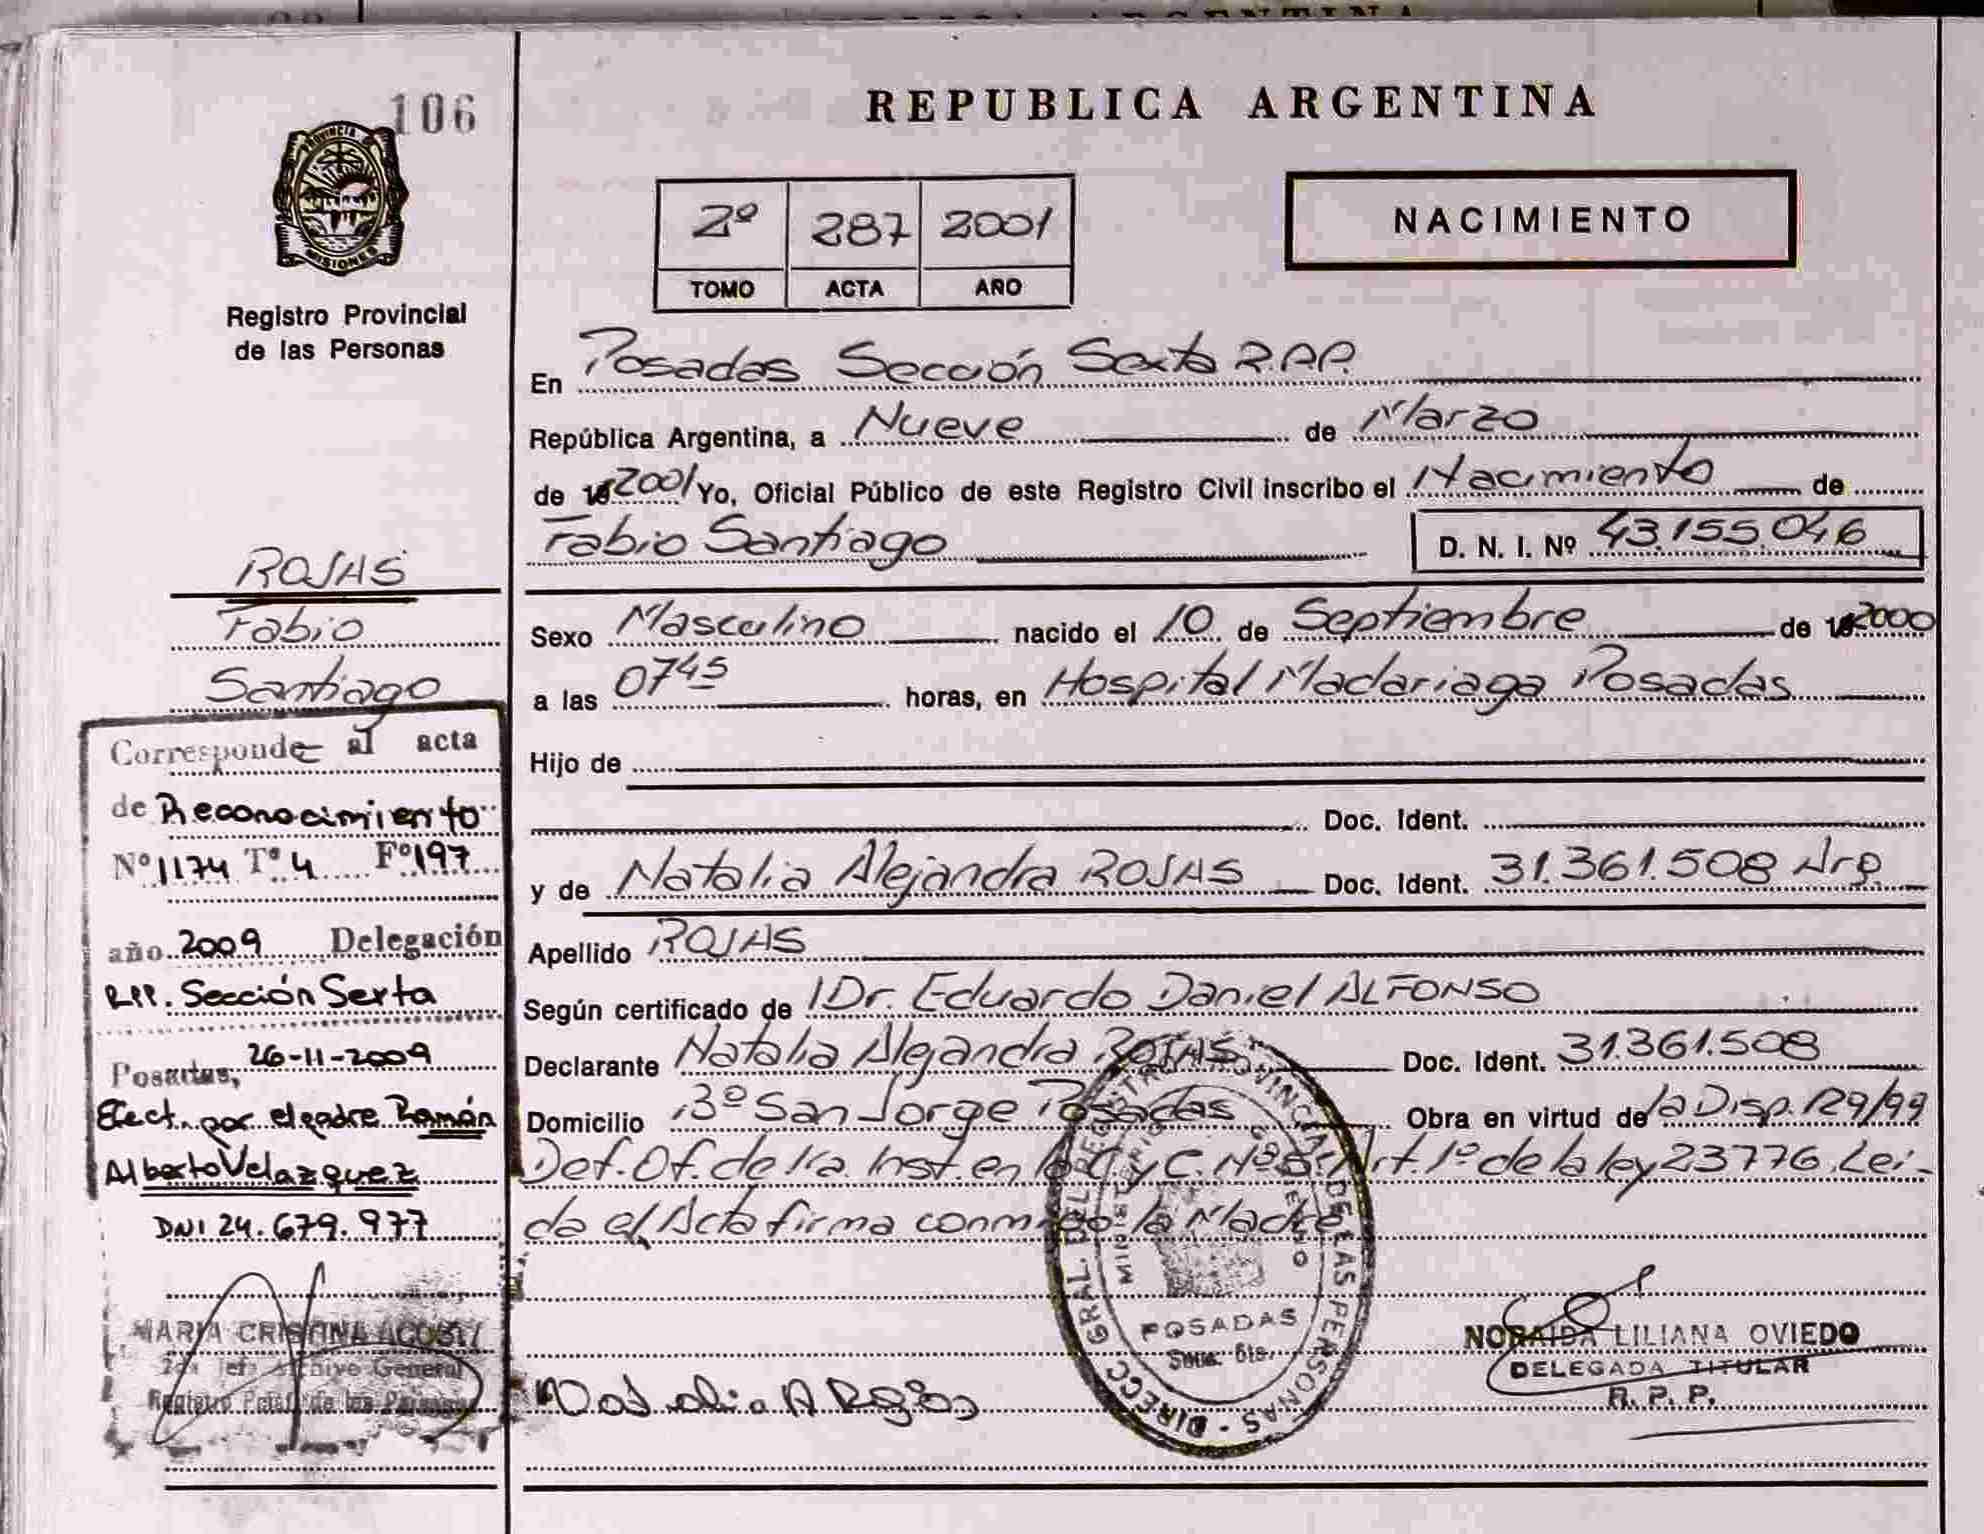 106
PROVINCIA DE
MISIONES
Registro Provincial
de las Personas
REPUBLICA ARGENTINA
2º 287 2001
TOMO ACTA AÑO
NACIMIENTO
En Posadas Sección Sexta R.P.P.
República Argentina, a Nueve de Marzo
de 2001 Yo, Oficial Público de este Registro Civil inscribo el Nacimiento de
Fabio Santiago D. N. I. Nº 43.155.046
Sexo Masculino nacido el 10 de Septiembre de 2000
a las 0745 horas, en Hospital Madariaga Posadas
Hijo de
Doc. Ident.
y de Natalia Alejandra ROJAS Doc. Ident. 31.361.508 Arg.
Apellido ROJAS
Según certificado de Dr. Eduardo Daniel ALFONSO
Declarante Natalia Alejandra ROJAS Doc. Ident. 31.361.508
Domicilio Bº San Jorge Posadas Obra en virtud de la Disp. 129/99
Def. Of. de 1ra. Inst. en lo C. y C. Nº 5. Art. 1º de la ley 23776. Lei-
da el Acta firma conmigo la Madre
Natalia A Rojas
ROJAS
Fabio
Santiago
Corresponde al acta
de Reconocimiento
Nº 1174 Tº 4 Fº 197
año 2009 Delegación
RPP. Sección Sexta
Posadas, 26-11-2009
Efect. por el padre Ramón
Alberto Velazquez
DNI 24.679.977
MARIA CRISTINA ACOSTA
2da Jefa Archivo General
Registro Pcial. de las Personas
DIRECC. GRAL. DEL REGISTRO PROVINCIAL DE LAS PERSONAS
MINISTERIO GOBIERNO
POSADAS
Secc. 6ta.
NORAIDA LILIANA OVIEDO
DELEGADA TITULAR
R. P. P.